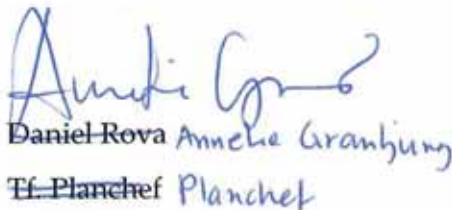 Daniel Rova Annelie Granljung
Tf. Planchef Planchef